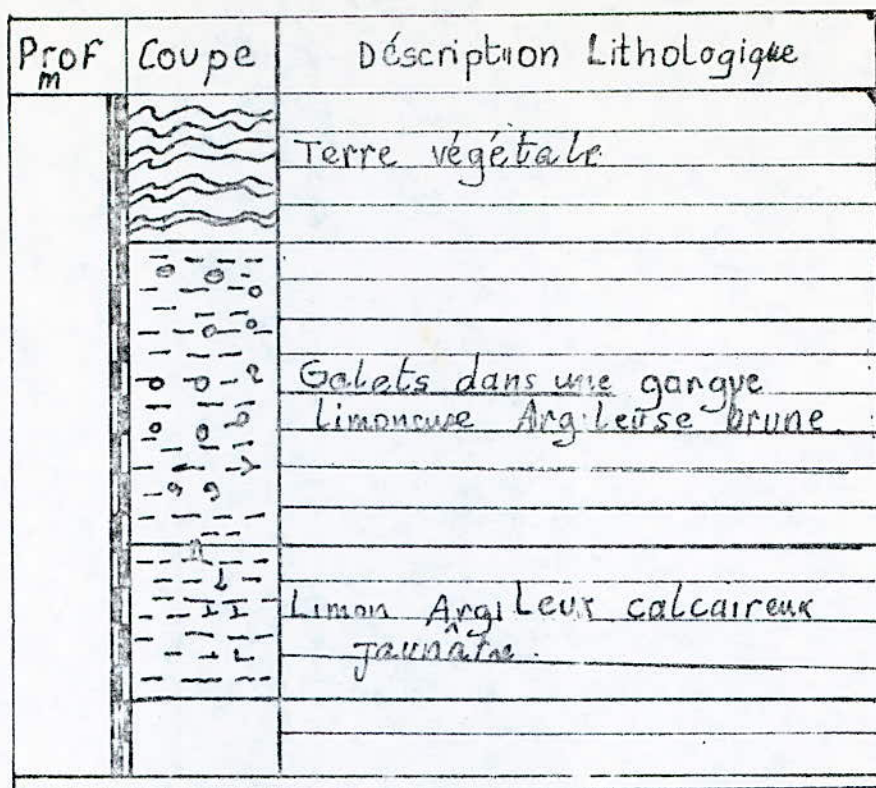 Prof Coupe Déscription Lithologique
m
Terre végétale
Galets dans une gangue
Limoneuse Argileuse brune.
Limon Argileux calcaireux
jaunâtre.